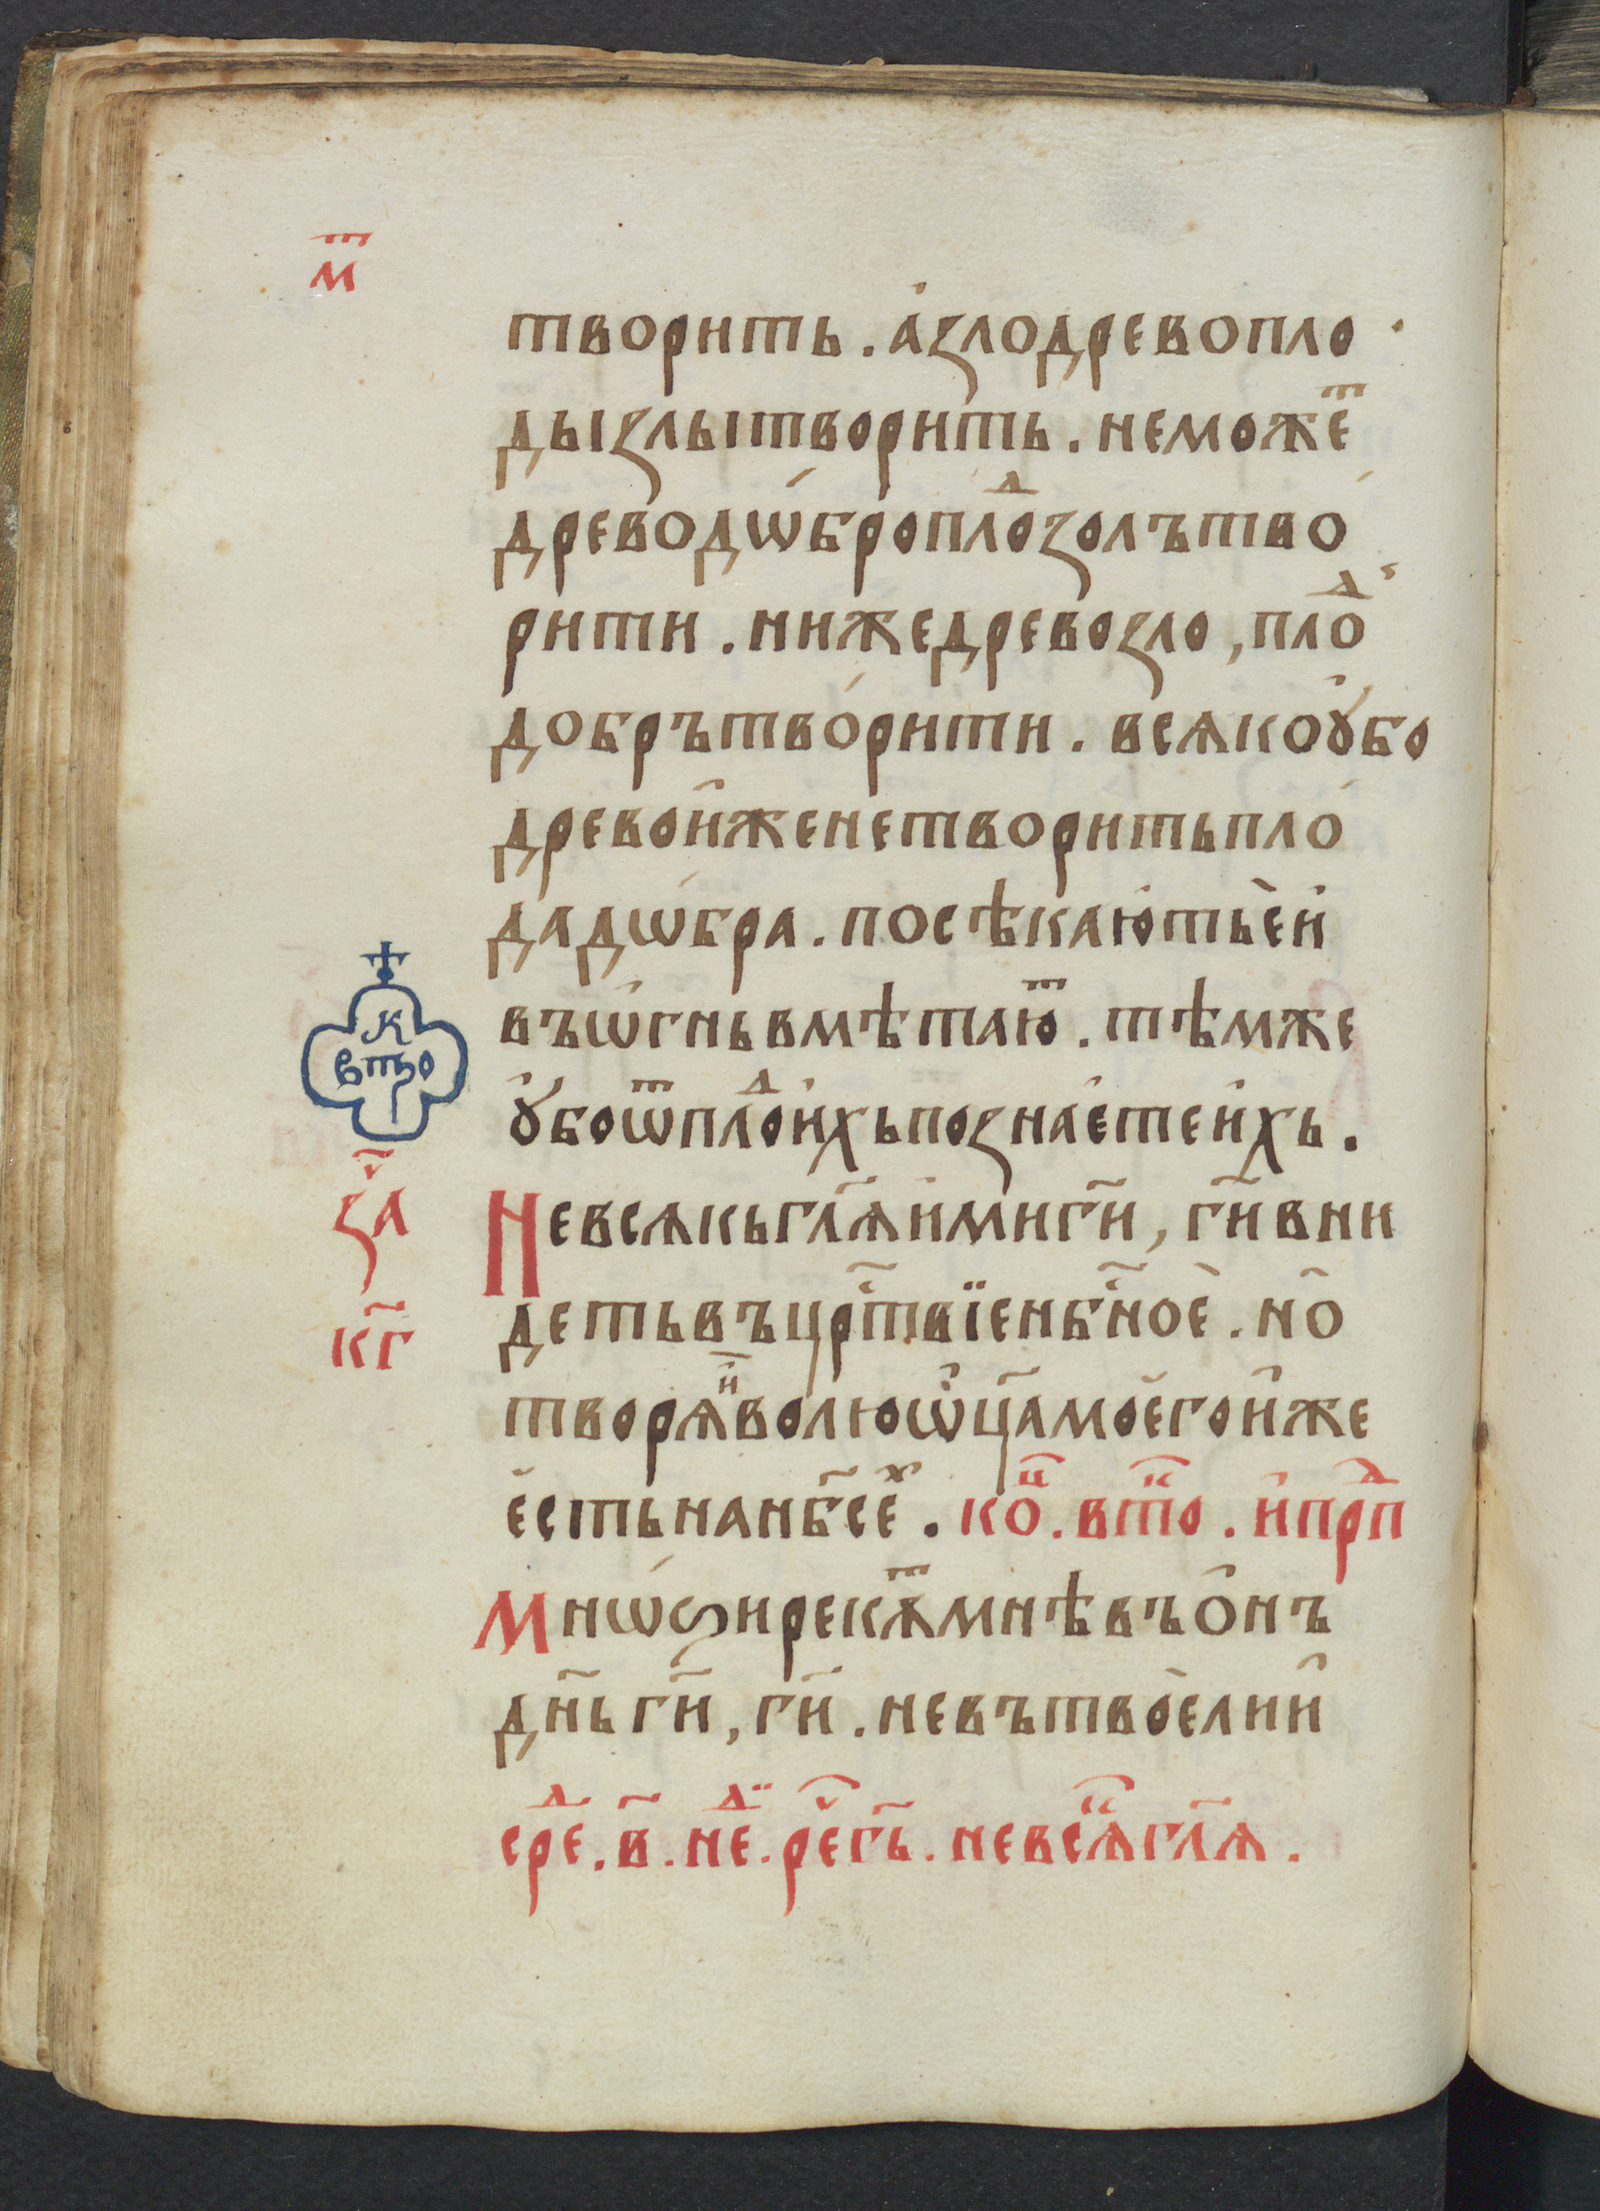 м҃т
творить . а҆ꙁлодрево пло
дыꙁлытворить . неможеⷮ
древодѡ́броплоⷣꙁолътво́
рити . нижедревоꙁло , плоⷣ
добрътво́рити . всѧкоꙋ҆бо
древои҆́женетворитьпло́
дадѡ́бра . посѣкаютьѐи
въѡ҆́гньвмѣтаюⷮ . тѣмже
к
втрю
ꙋ҆боѿплоⷣи҆хьпоꙁна́етеи҆хь .
ꙁаⷱ
к҃г
Невсѧкьгл҃ѧи҆миг҃и , г҃ивни
детьвъцрⷭ҇твїенбⷭ҇ноѐ . но̑
творѧⷩ҇волюѡ҆ц҃амоего̀и҆́же
е҆стьнанб҃сеⷯ . коⷰ . втоⷬ . и҆прⷣп
Мнѡꙃирекѫⷮмнѣвъѻ҆нъ
дн҃ьг҃и , г҃и . невътвоѐлии҆́
среⷣ . в҃ . неⷣ . реⷱг҃ь . невсѧⷦгл҃ѧ .